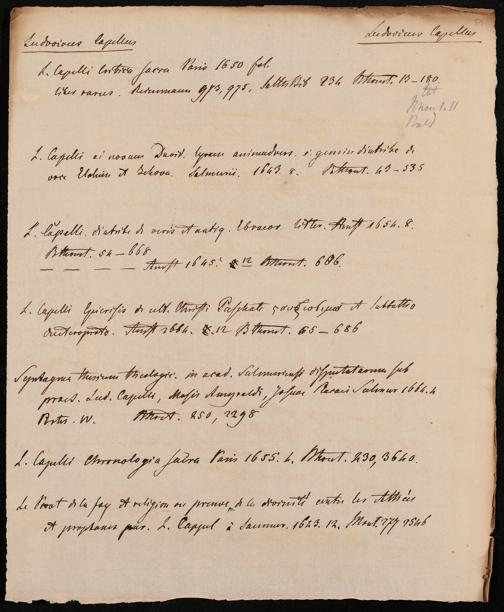 Ludovicus Capellus
Ludovicus Capellus
L. Capelli Critica sacra Paris 1650 fol.
liber rarus. 973, 975, 234 Bthout. 13–180
L. Capelli ad novam David. lyram animadvers. s. gemin diatribe de
voce Elohim et Jehova. Salmurii. 1643. 8. Bthout. 43–535
L. Capelli diatribe de veris et antiq. Ebraeor. litter. Amst 1654. 8.
Bthout. 54–668
Amst 1645. 12 Bthout. 686.
L. Capelli Epicrisis de ult. Christi Paschate et Sabbatho
deuteroproto. Amst 1644. 12 Bthout. 65–686
Syntagma thesium theologic. in acad. Salmuriensi disputatarum sub
praes. Lud. Capelli, Mosis Amyraldi, Josuae Placaei Salmur 1664. 4
Bthout. 250, 2298
L. Capelli Chronologia sacra Paris 1655. 4. Bthout. 230, 3640.
Le Pivot de la foy et religion ou preuve de la divinité contre les Athées
et prophanes par. L. Cappel à Saumur. 1623. 12. 779 9546